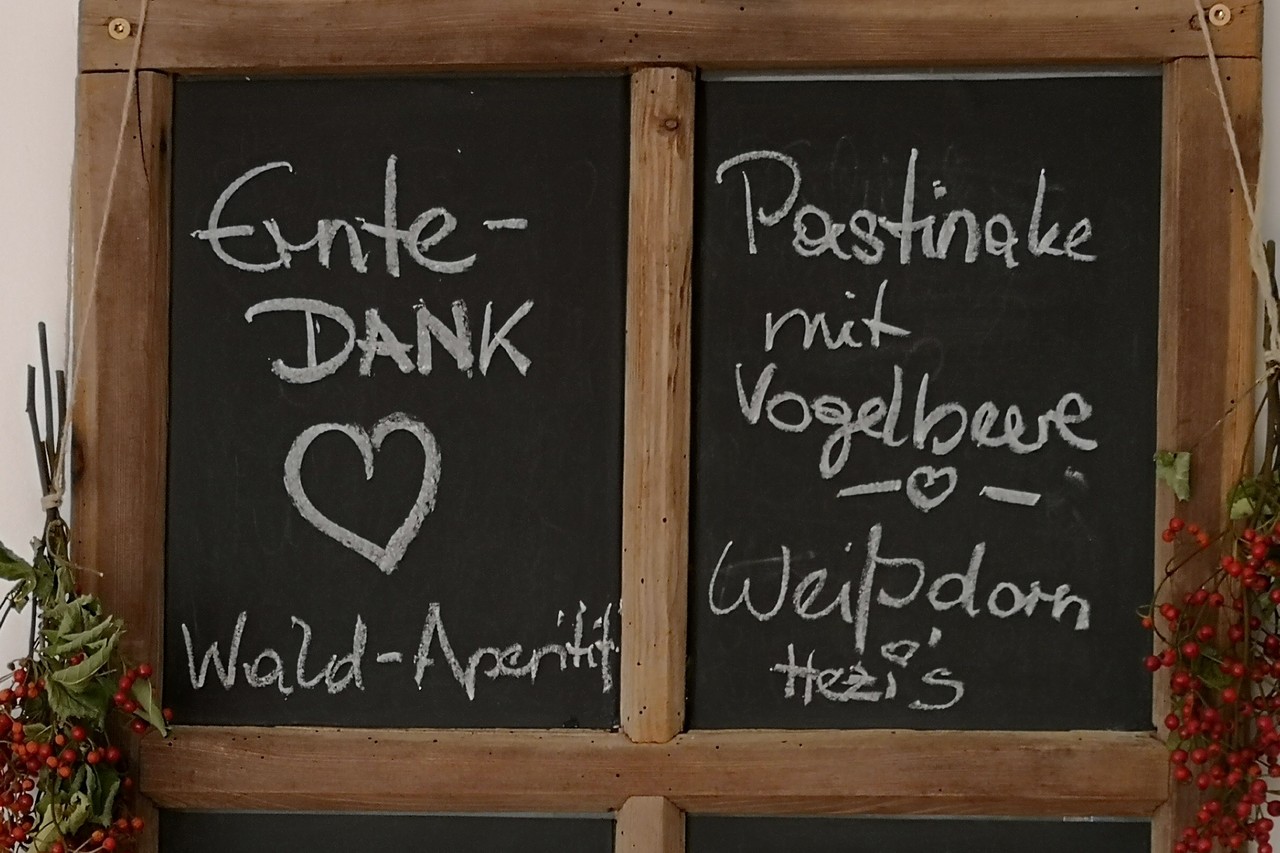 Ernte-
DANK
Wald-Aperitif
Pastinake
mit
Vogelbeere
Weißdorn
Hezi's